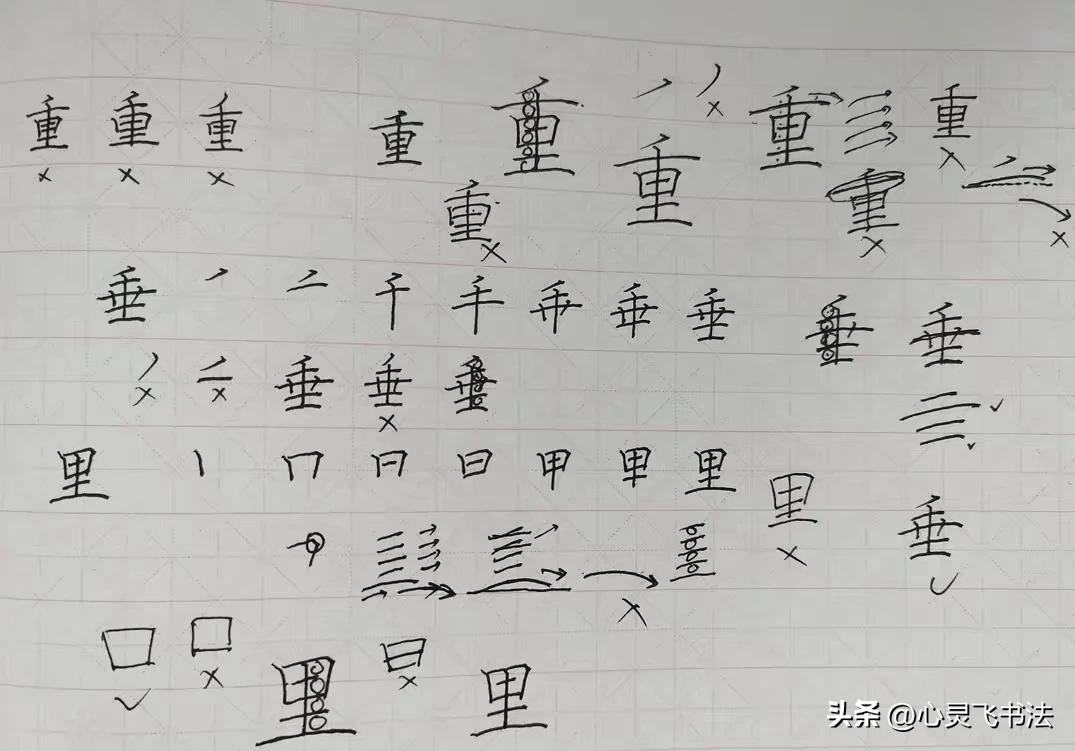 重 重 重 重 重 重 重
重 重 重
垂 丿 千 手 垂 垂 垂
垂 垂 垂
里 丨 冂 日 甲 里 里
垂
口 口 里 里
头条 @心灵飞书法